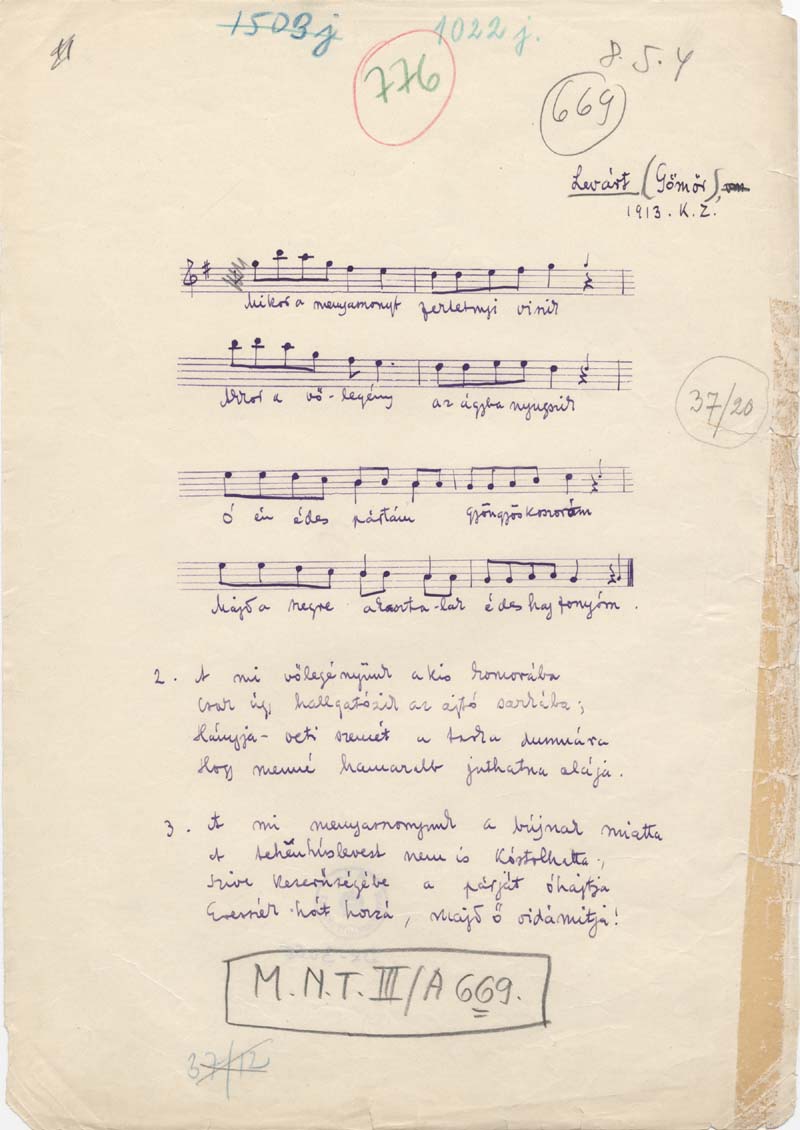 1503j
1022 j.
776
8. 5. 4
669
Levárt (Gömör),
1913. K. Z.
Mikor a menyasszonyt fektetnyi viszik
Akkor a vő-legény az ágyba nyugszik
37/20
Ó én édes pártám Gyöngyöskoszorúm
Majd a szegre akaszta-lak édes haj fonyóm.
2. A mi vőlegényünk a kis komorába
Csak úgy hallgatózik az ajtó sarkába;
Hányja-veti szemét a tarka dunnára
Hogy menné hamarabb juthatna alája.
3. A mi menyasszonyunk a bújnak miatta
A tehénhúslevest nem is kóstolhatta,
Szive keserűségébe a párját óhajtja
Eresszék hát hozzá, majd ő vidámítja!
M.N.T. III/A 669.
37/12